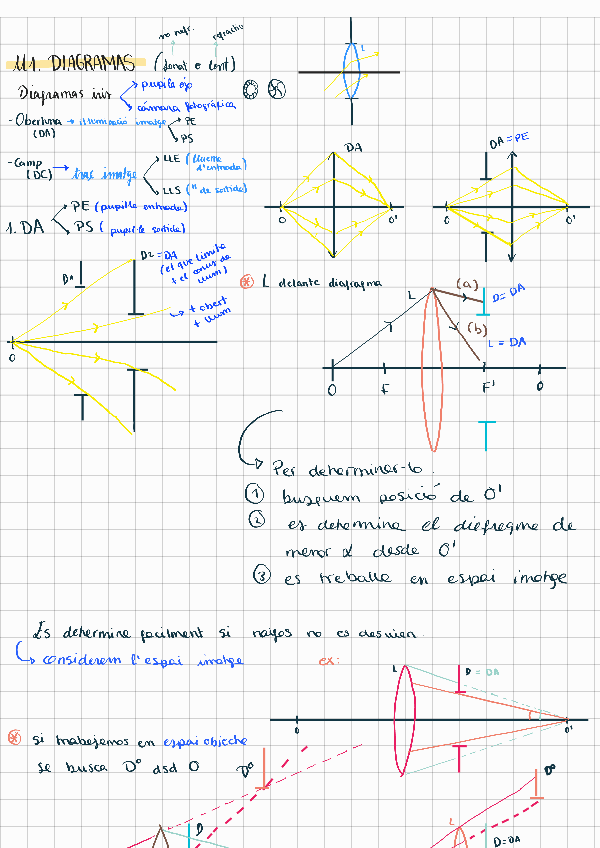 no refr.
refracho
U1. DIAGRAMAS (donat o cont)
Diagrames iris
pupila ojo
cámara fotográfica
- Obertura → il·luminació imatge
(DA)
PE
PS
- Camp → traç imatge
(DC)
LLE (lluerne d'entrada)
LLS (" de sortida)
1. DA
PE (pupille entrada)
PS (pupille sortida)
L
DA
O
O'
DA = PE
O
O'
D1
D2 = DA
(el que limita
+ el conus de
llum)
↳ + obert
+ llum
O
* L delante diafragma
L
(a)
D = DA
(b)
L = DA
O
F
F'
O
Per determinar-lo:
① busquem posició de O'
② es determina el diafragma de
menor α desde O'
③ es treballa en espai imatge
Es determina facilment si raigs no es desvien.
↳ considerem l'espai imatge
ex:
L
D = DA
O
O'
* si trabajemos en espai objecte
se busca D° dsd O
D°
D
D°
L
D = DA